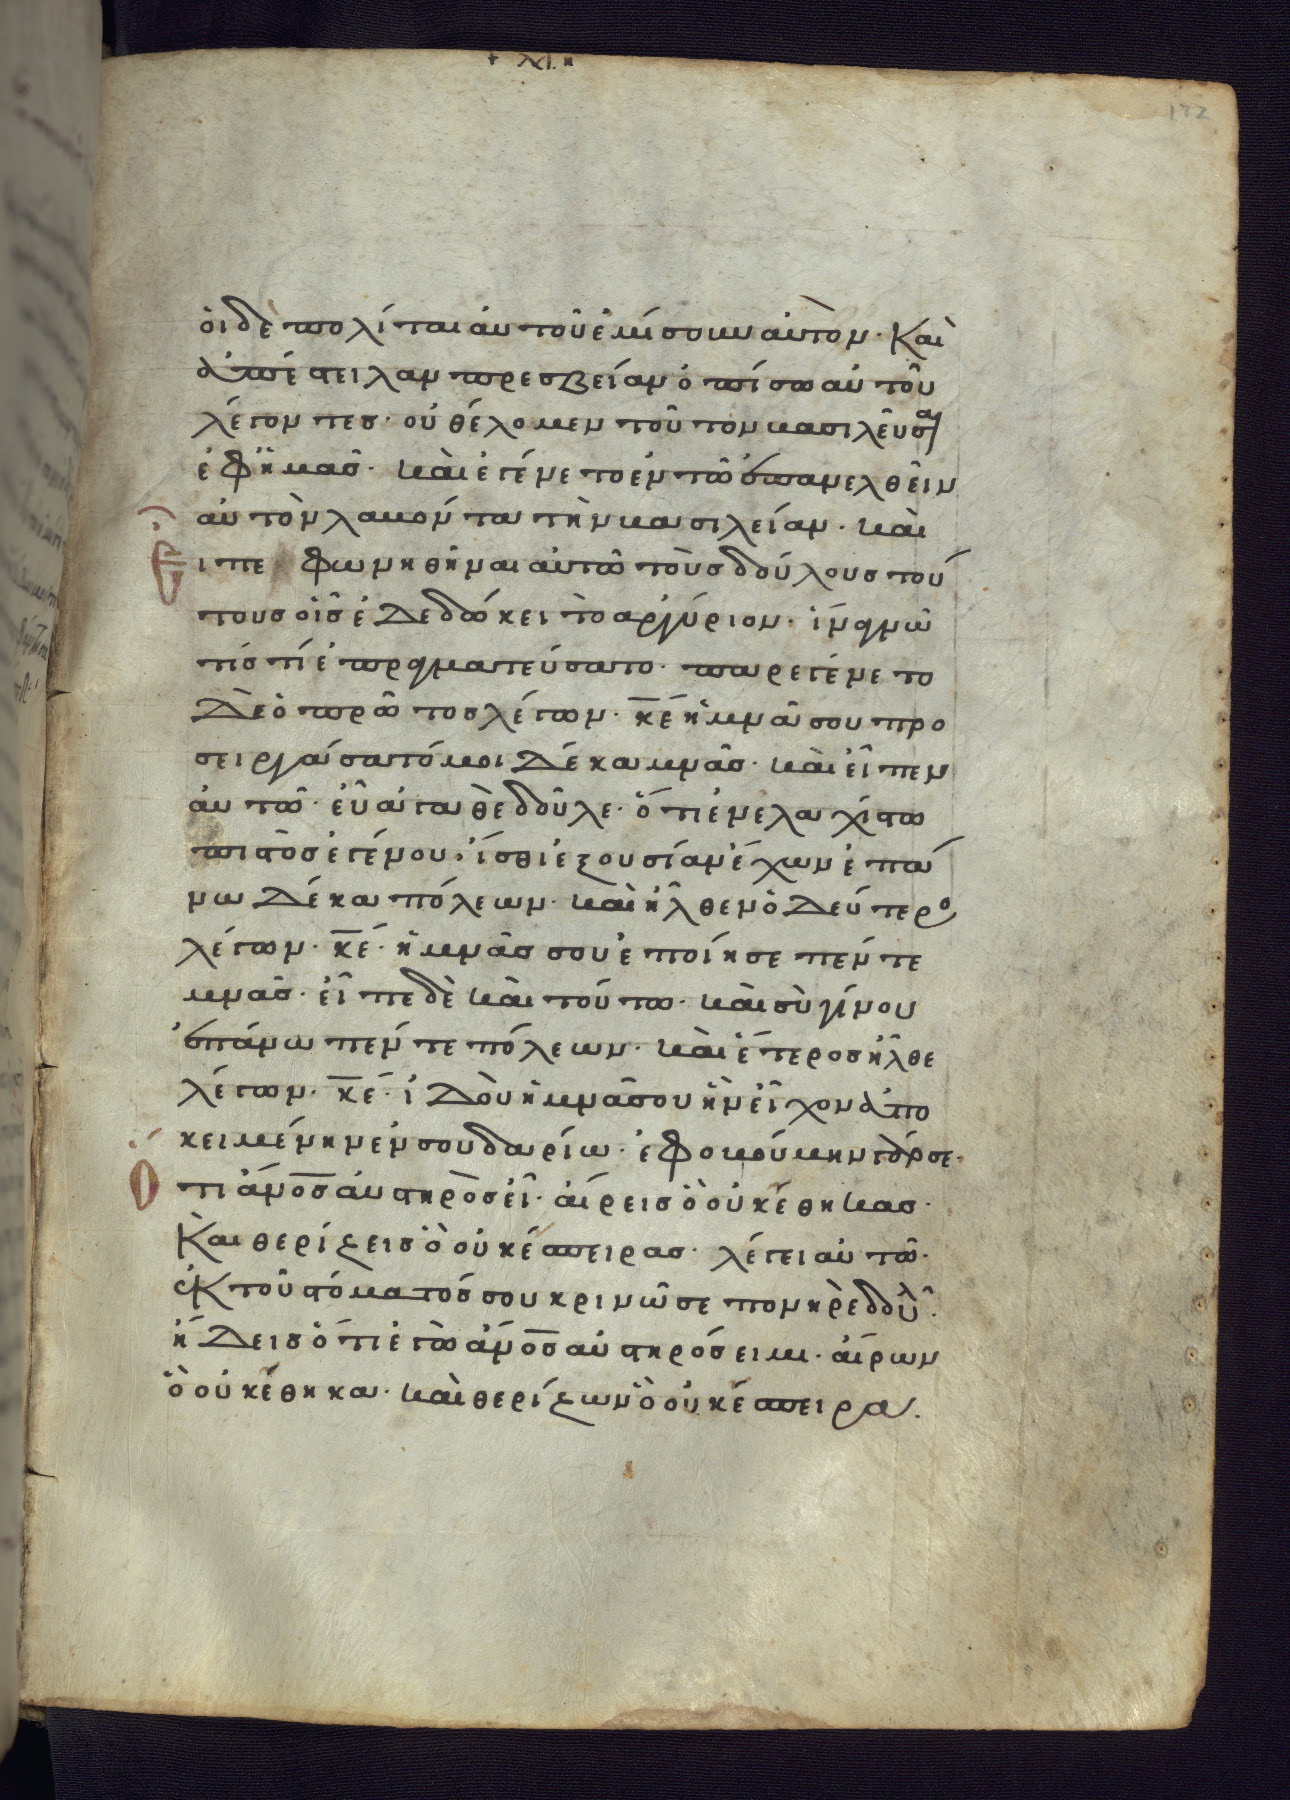 172
οἱ δὲ πολίται αὐτοῦ ἐμίσουν αὐτον· Καὶ
ἀπέστειλαν πρεσβείαν ὀπίσω αὐτοῦ
λέγοντες· οὐ θέλομεν τοῦτον βασιλεῦσαι
ἐφ ἡμᾶς· καὶ ἐγένετο ἐν τῶ ἐπανελθεῖν
αὐτὸν λαβόντα τὴν βασιλείαν· καὶ
εἶπε φωνηθῆναι αὐτῶ τοὺς δούλους τού
τους οἷς ἐδεδώκει τὸ ἀργύριον· ἵνα γνῶ
τίς τί ἐπραγματεύσατο· παρεγένετο
δὲ ὁ πρῶτος λέγων· κε ἡ μνᾶ σου προ
σειργάσατό μοι δέκα μνᾶς· καὶ εἶπεν
αὐτῶ· εὖ ἀγαθὲ δοῦλε· ὅτι ἐν ἐλαχίστω
πιστὸς ἐγένου· ἴσθι ἐξουσίαν ἔχων ἐπά
νω δέκα πόλεων· καὶ ἦλθεν ὁ δεύτερο
λέγων· κε· ἡ μνᾶς σου ἐποίησε πέντε
μνᾶς· εἶπε δὲ καὶ τούτω· καὶ σὺ γίνου
ἐπάνω πέντε πόλεων· καὶ ἕτερος ἦλθε
λέγων· κε· ἰδοὺ ἡ μνᾶ σου ἣν εἶχον ἀπο
κειμένην ἐν σουδαρίω· ἐφοβούμην γάρ σε·
Οτι ἄνος αὐστηρὸς εἶ· αἴρεις ὃ οὐκ ἔθηκας·
Καὶ θερίζεις ὃ οὐκ ἔσπειρας· λέγει αὐτῶ·
ἐκ τοῦ στόματός σου κρινῶ σε πονηρὲ δοῦλ·
ἤδεις ὅτι ἐγὼ ἄνος αὐστηρός ειμι· αἴρων
ὃ οὐκ ἔθηκα· καὶ θερίζων ὃ οὐκ ἔσπειρα.